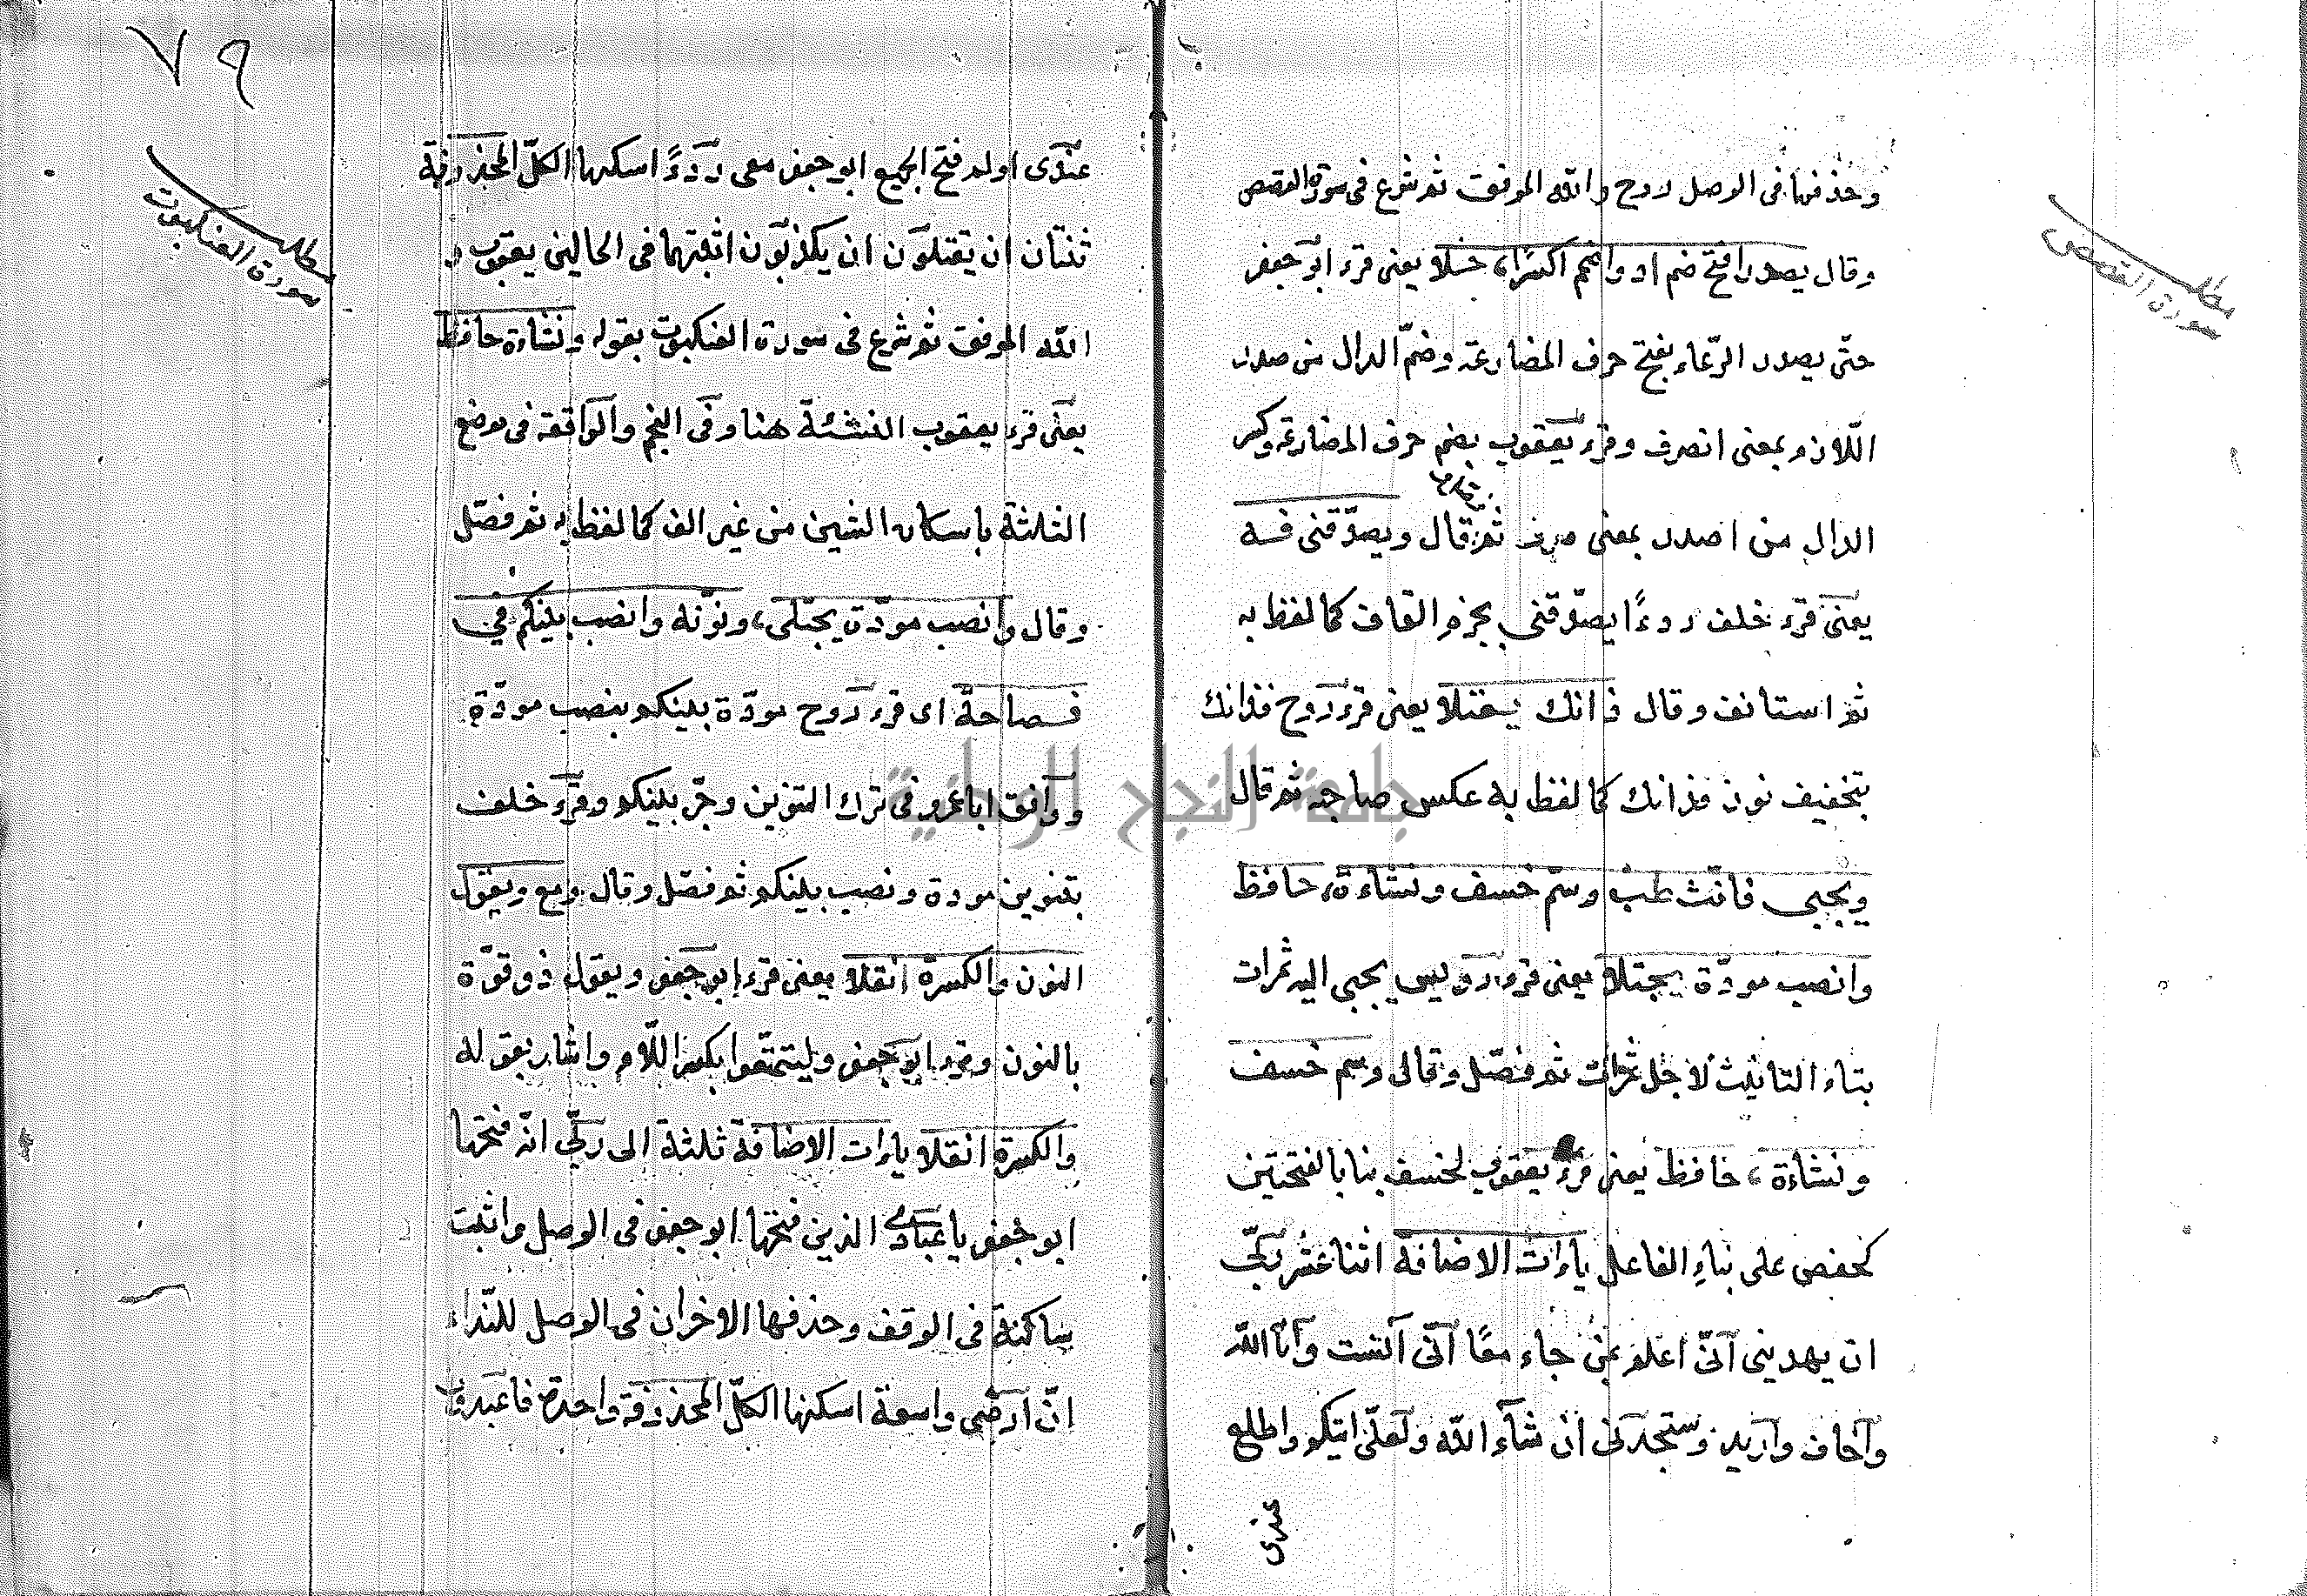 مطلب
سورة القصص
وحذفها فى الوصل روح والله الموفق ثم شرع فى سورة القصص
وقال يصدر افتح ضم اد واضمم اكسرًا، خنلا يعنى قرء ابو جعفر
حتّى يصدر الرّعاء بفتح حرف المضارعة وضمّ الدال من صدر
اللازم بمعنى انصرف وقرء يعقوب بضم حرف المضارعة وكسر
الدال من اصدر بمعنى صرف ثم قال ويصدّقنى فه
يعنى قرء خلف ردءًا يصدّقنى بجزم القاف كما لفظ به
ثم استانف وقال فذانك يعتلا يعنى قرء روح فذانك
بتخفيف نون فذانك كما لفظ به عكس صاحبه ثم قال
ويجبى فانّث طب وسمّ خسف ونشاءة، حافظ
وانصب مودّة يجتلا يعنى قرء رويس يجبى اليه ثمرات
بتاء التانيث لاجل ثمرات ثم فصّل وقال وسم خسف
ونشاءة، حافظ يعنى قرء يعقوب لخسف بنا بالفتحتين
كحفص على بناء الفاعل ياءات الاضافة اثنا عشر ربّى
ان يهدينى انّى اعلم بمن جاء معًا انّى آنست وانا الله
واخاف واريد وستجدنى ان شاء الله ولعلّى اتيكم واطلع
عندى
٧٩
مطلب
سورة العنكبوت
عندى اولم فتح الجميع ابو جعفر معى ردءًا اسكنها الكلّ المحذوفة
ثنتان ان يقتلون ان يكذبون اثبتهما فى الحالين يعقوب و
الله الموفق ثم شرع فى سورة العنكبوت بقوله ونشاءة حافظ
يعنى قرء يعقوب النشئة هنا وفى النجم والواقعة فى موضع
الثلثة باسكان الشين من غير الف كما لفظ به ثم فصّل
وقال وانصب مودّة يجتلى، ونوّنه وانصب بينكم فى
فصاحة اى قرء روح مودّة بينكم بنصب مودّة
ووافق ابا عمرو فى ترك التنوين وجرّ بينكم وقرء خلف
بتنوين مودة ونصب بينكم ثم فصّل وقال ومع ويقول
النون والكسرة انقلا يعنى قرء ابو جعفر ويقول ذوقوة
بالنون وقرء ابو جعفر وليتمتّعوا بكسر اللّام واشار بقوله
والكسرة انقلا ياءات الاضافة ثلثة الى ربّى انّه فتحها
ابو جعفر يا عبادى الذين فتحها ابو جعفر فى الوصل واثبت
ساكنة فى الوقف وحذفها الاخران فى الوصل للنّداء
انّ ارضى واسعة اسكنها الكلّ المحذوفة واحدة فاعبدون
جامعة النجاح الوطنية